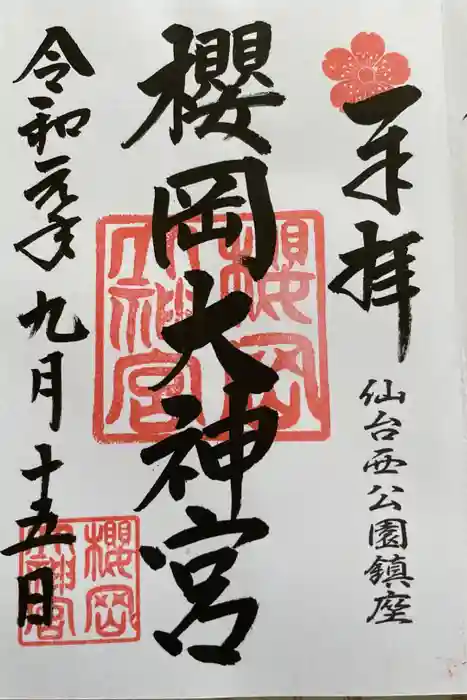 奉拝
仙台西公園鎮座
櫻岡大神宮
令和元年九月十五日
櫻岡
大神宮
櫻岡
大神宮